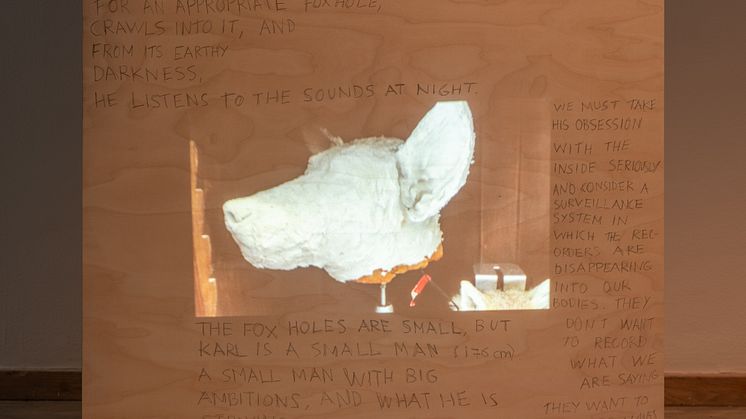 FOR AN APPROPRIATE FOXHOLE,
CRAWLS INTO IT, AND
FROM ITS EARTHY
DARKNESS,
HE LISTENS TO THE SOUNDS AT NIGHT.
WE MUST TAKE
HIS OBSESSION
WITH THE
INSIDE SERIOUSLY
AND CONSIDER A
SURVEILLANCE
SYSTEM IN
WHICH THE REC-
ORDERS ARE
DISAPPEARING
INTO OUR
BODIES. THEY
DON'T WANT
TO RECORD
WHAT WE
ARE SAYING
THEY WANT TO
THE FOX HOLES ARE SMALL, BUT
KARL IS A SMALL MAN (176 cm)
A SMALL MAN WITH BIG
AMBITIONS, AND WHAT HE IS